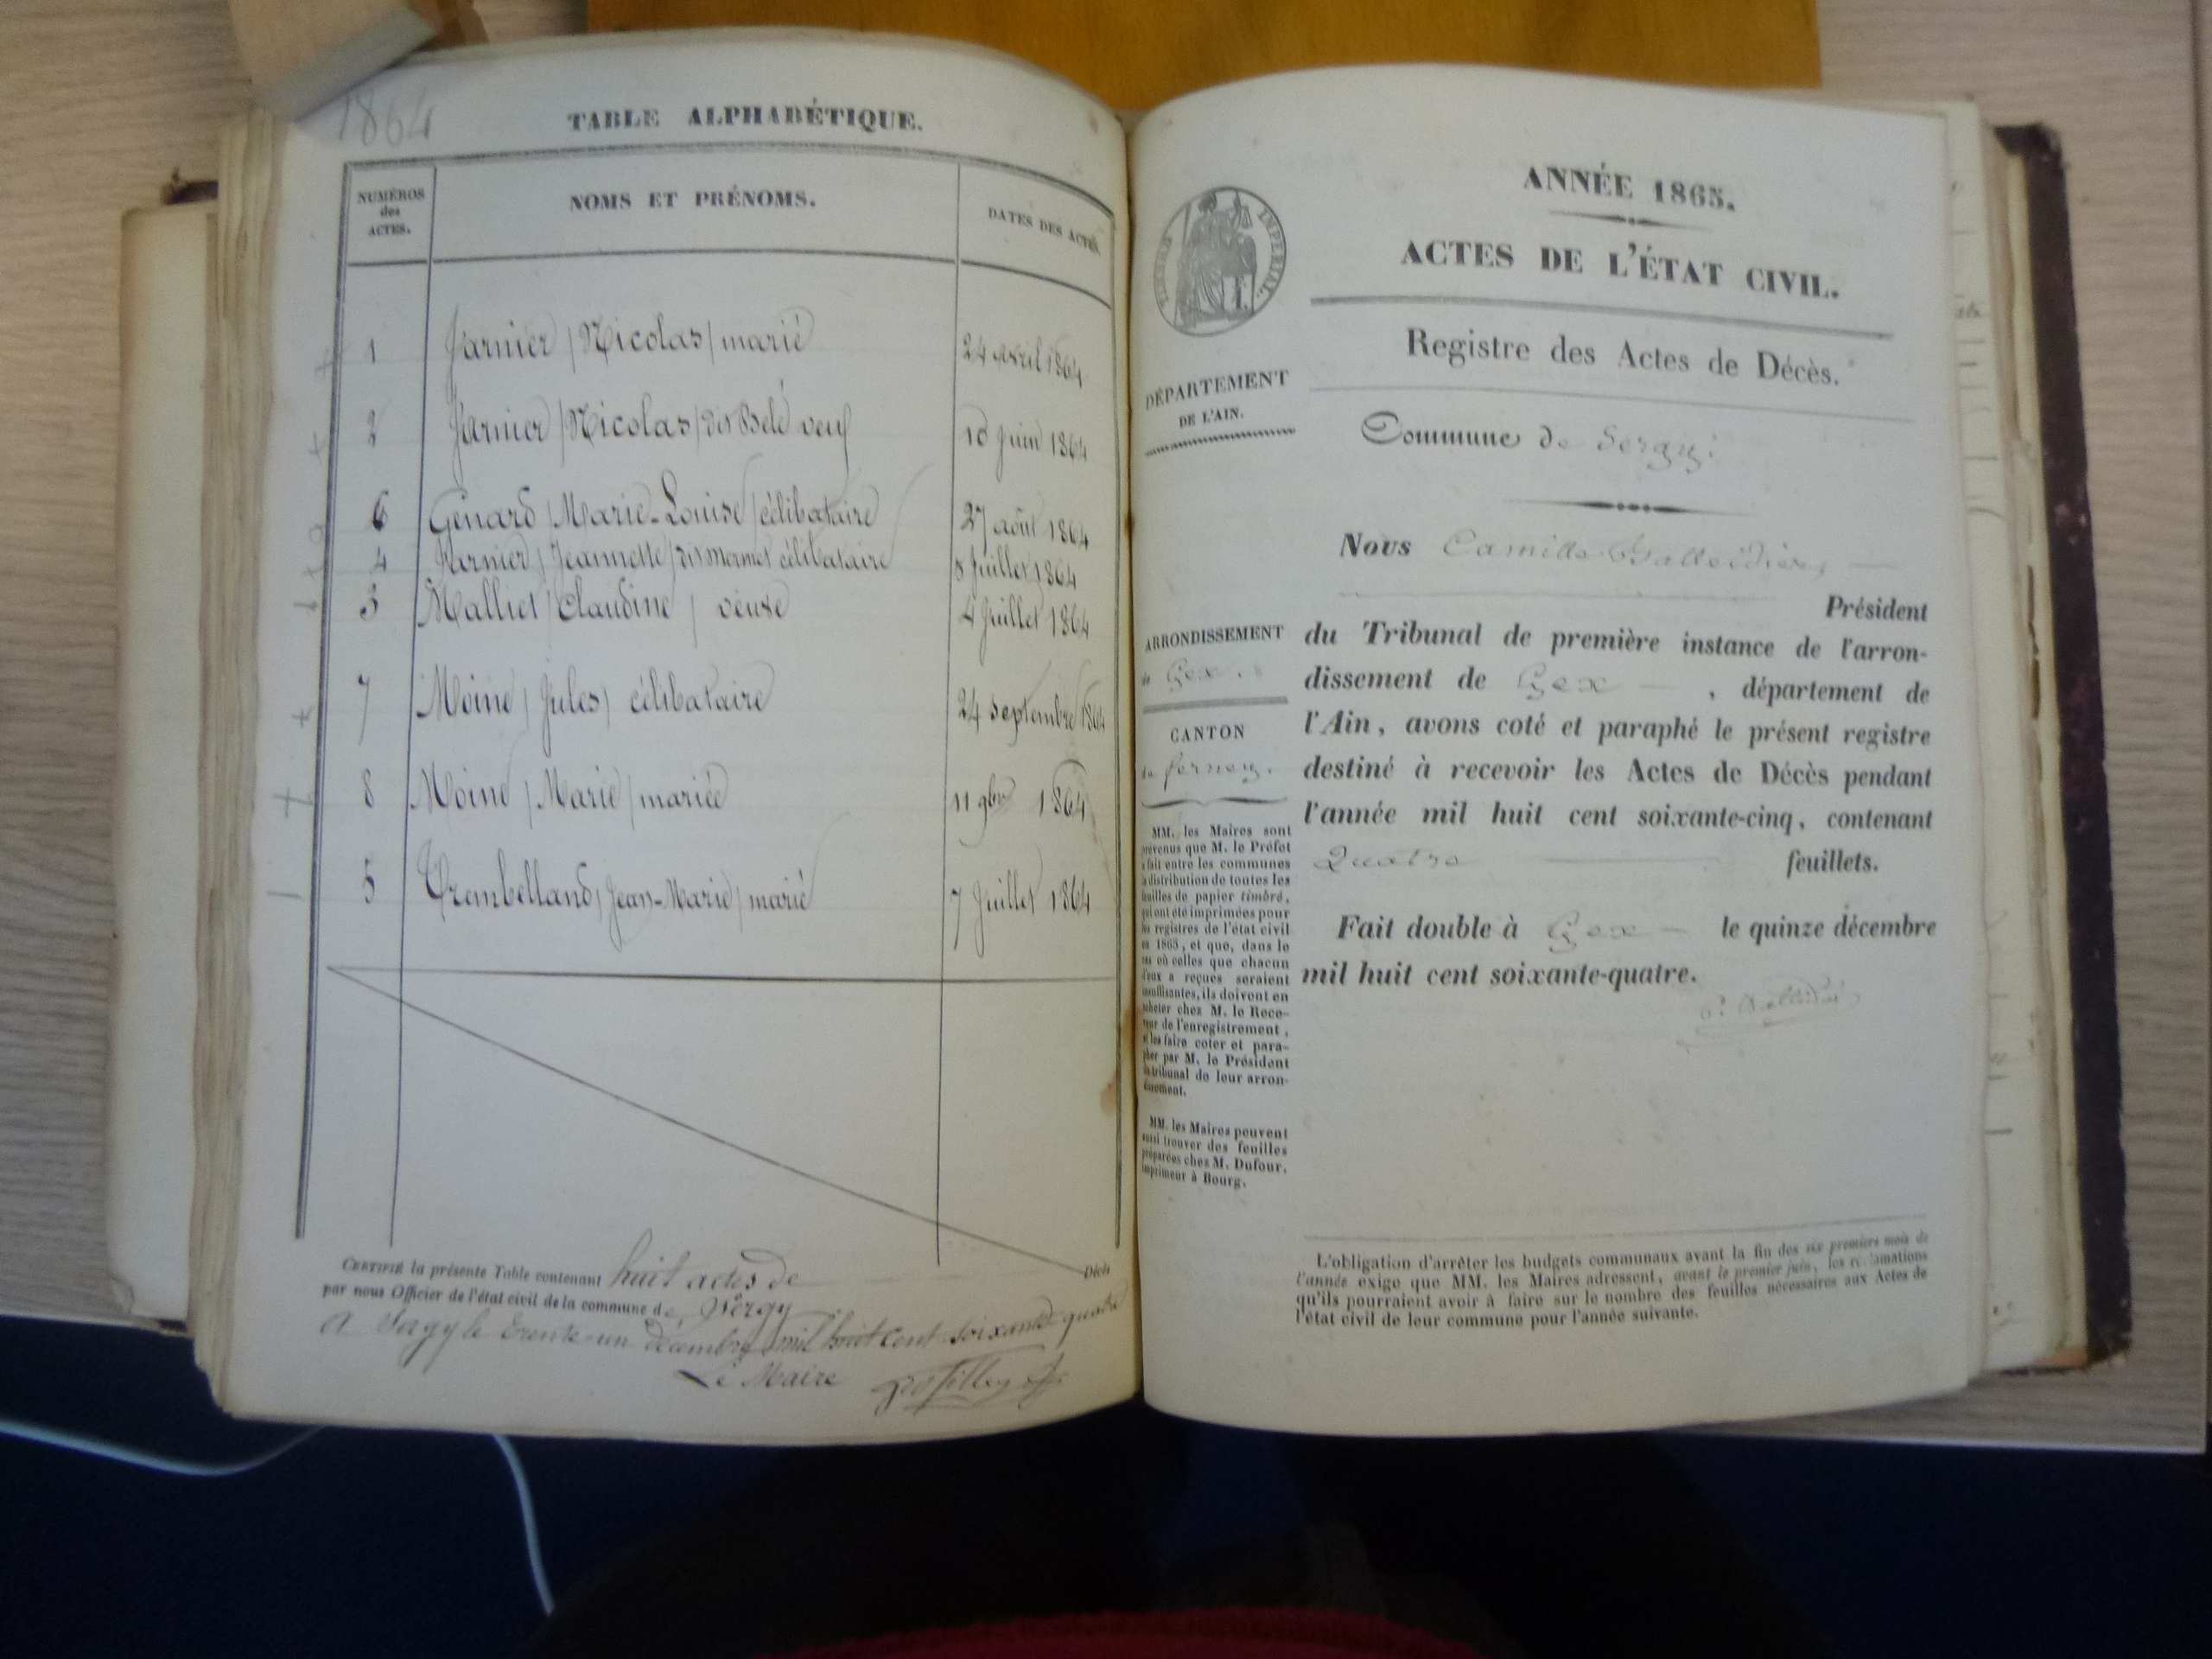 1864
TABLE ALPHABÉTIQUE.
NUMÉROS
des
ACTES.
NOMS ET PRÉNOMS.
DATES DES ACTES.
1 Jarnier / Nicolas / marié 24 avril 1864
2 Jarnier / Nicolas / dit Belé veuf 10 juin 1864
6 Génard / Marie-Louise / célibataire 27 août 1864
4 Jarnier / Jeannette / dit Mermet célibataire 5 Juillet 1864
3 Malliet / Claudine / veuve 4 Juillet 1864
7 Moine / Jules / célibataire 24 septembre 1864
8 Moine / Marie / mariée 11 9bre 1864
5 Trembelland / Jean-Marie / marié 7 Juillet 1864
CERTIFIÉ la présente Table contenant huit actes de Décès
par nous Officier de l'état civil de la commune de Sergy
A Sergy le trente-un décembre mil huit cent soixante quatre
Le Maire
ANNÉE 1865.
ACTES DE L'ÉTAT CIVIL.
TIMBRE IMPÉRIAL.
Registre des Actes de Décès.
DÉPARTEMENT
DE L'AIN.
Commune de Sergy.
Nous Camille
Président
ARRONDISSEMENT
de Gex.
CANTON
de ferney.
du Tribunal de première instance de l'arron-
dissement de Gex, département de
l'Ain, avons coté et paraphé le présent registre
destiné à recevoir les Actes de Décès pendant
l'année mil huit cent soixante-cinq, contenant
Quatre feuillets.
Fait double à Gex le quinze décembre
mil huit cent soixante-quatre.
MM. les Maires sont
prévenus que M. le Préfet
a fait entre les communes
la distribution de toutes les
feuilles de papier timbré,
qui ont été imprimées pour
les registres de l'état civil
en 1865, et que, dans le
cas où celles que chacun
d'eux a reçues seraient
insuffisantes, ils doivent en
acheter chez M. le Rece-
veur de l'enregistrement,
et les faire coter et para-
pher par M. le Président
du tribunal de leur arron-
dissement.
MM. les Maires peuvent
aussi trouver des feuilles
préparées chez M. Dufour,
imprimeur à Bourg.
L'obligation d'arrêter les budgets communaux avant la fin des six premiers mois de
l'année exige que MM. les Maires adressent, avant le premier juin, les réclamations
qu'ils pourraient avoir à faire sur le nombre des feuilles nécessaires aux Actes de
l'état civil de leur commune pour l'année suivante.